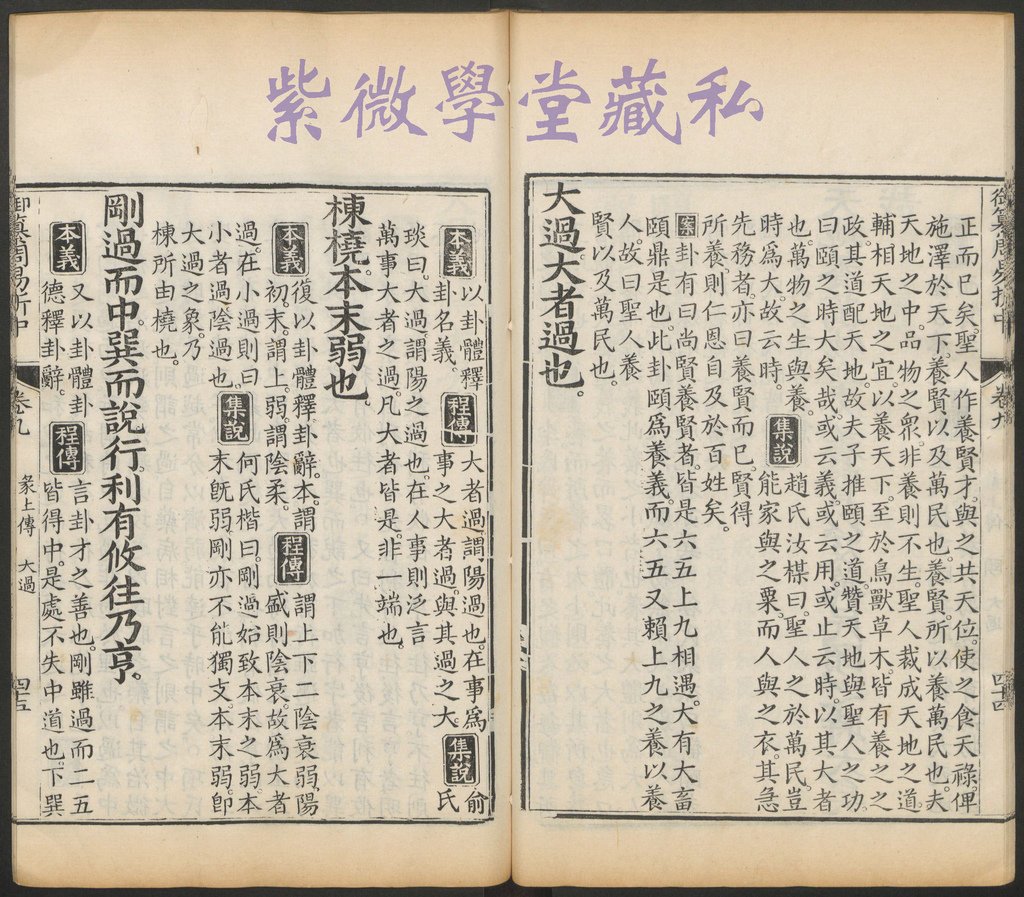 紫微學堂藏私
御纂周易折中
卷九
四十四
正而已矣。聖人作養賢才。與之共天位。使之食天祿。俾
施澤於天下。養賢以及萬民也。養賢。所以養萬民也。夫
天地之中。品物之眾。非養則不生。聖人裁成天地之道。
輔相天地之宜。以養天下。至於鳥獸草木。皆有養之之
政。其道配天地。故夫子推頤之道。贊天地與聖人之功。
曰頤之時大矣哉。或云義。或云用。或止云時。以其大者
也。萬物之生與養。
時為大。故云時。
集說
趙氏汝楳曰。聖人之於萬民。豈
能家與之粟。而人與之衣。其急
先務者。亦曰養賢而已。賢得
所養。則仁恩自及於百姓矣。
案
卦有曰尚賢養賢者。皆是六五上九相遇。大有大畜
頤鼎是也。此卦頤為養義。而六五又賴上九之養以養
人。故曰聖人養
賢以及萬民也。
大過大者過也。
本義
以卦體釋
卦名義。
程傳
大者過。謂陽過也。在事為
事之大者過。與其過之大。
集說
俞
氏
琰曰。大過。謂陽之過也。在人事則泛言
萬事大者之過。凡大者皆是。非一端也。
棟橈本末弱也。
本義
復以卦體釋卦辭。本。謂
初。末。謂上。弱。謂陰柔。
程傳
謂上下二陰衰弱。陽
盛則陰衰。故為大者
過。在小過則曰
小者過。陰過也。
集說
何氏楷曰。剛過始致本末之弱。本
末旣弱。剛亦不能獨支。本末弱。卽
大過之象。乃
棟所由橈也。
剛過而中巽而說行利有攸往乃亨。
本義
又以卦體卦
德釋卦辭。
程傳
言卦才之善也。剛雖過而二五
皆得中。是處不失中道也。下巽
御纂周易折中
卷九
彖上傳
大過
四十五